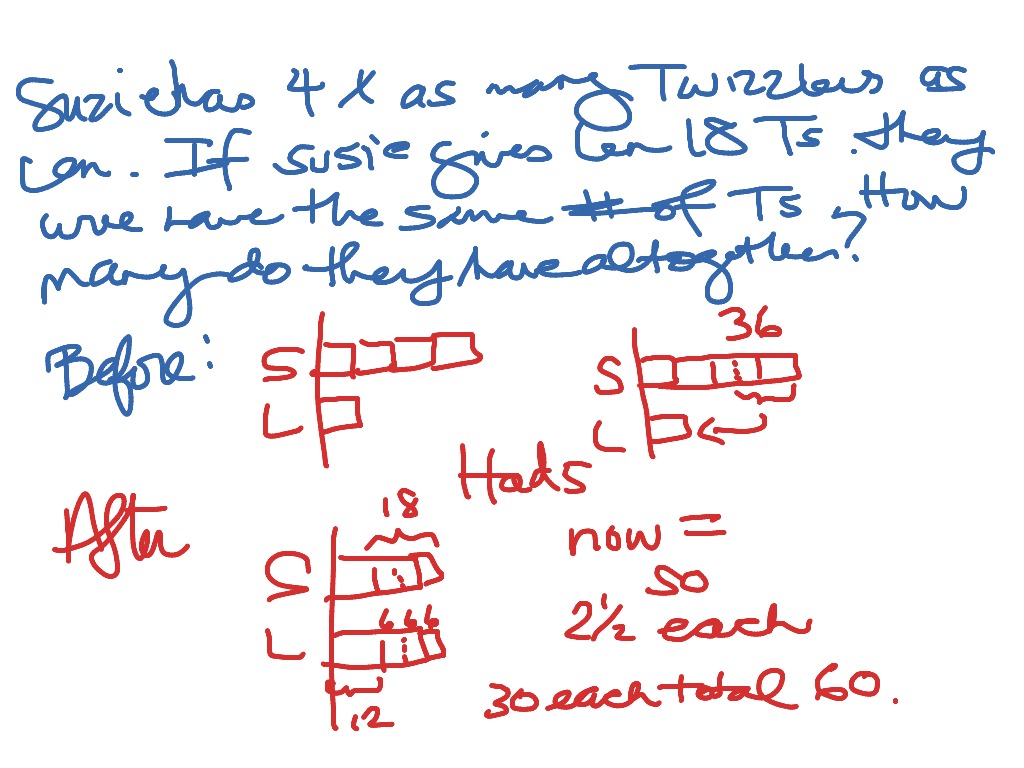 Suzie has 4 X as many Twizzlers as
Len. If Susie gives Len 18 Ts. they
will have the same # of Ts How
many do they have altogether?
Before:
S
L
36
S
L
Had 5
After
18
S
L
6 6 6
12
now =
so
2½ each
30 each total 60.